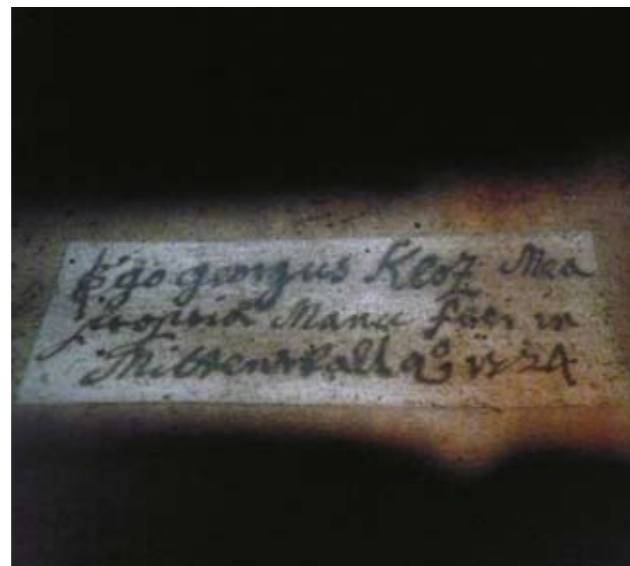 Ego georgius Kloz Mea
propria Manu feci in
Mittenwald aº 1724